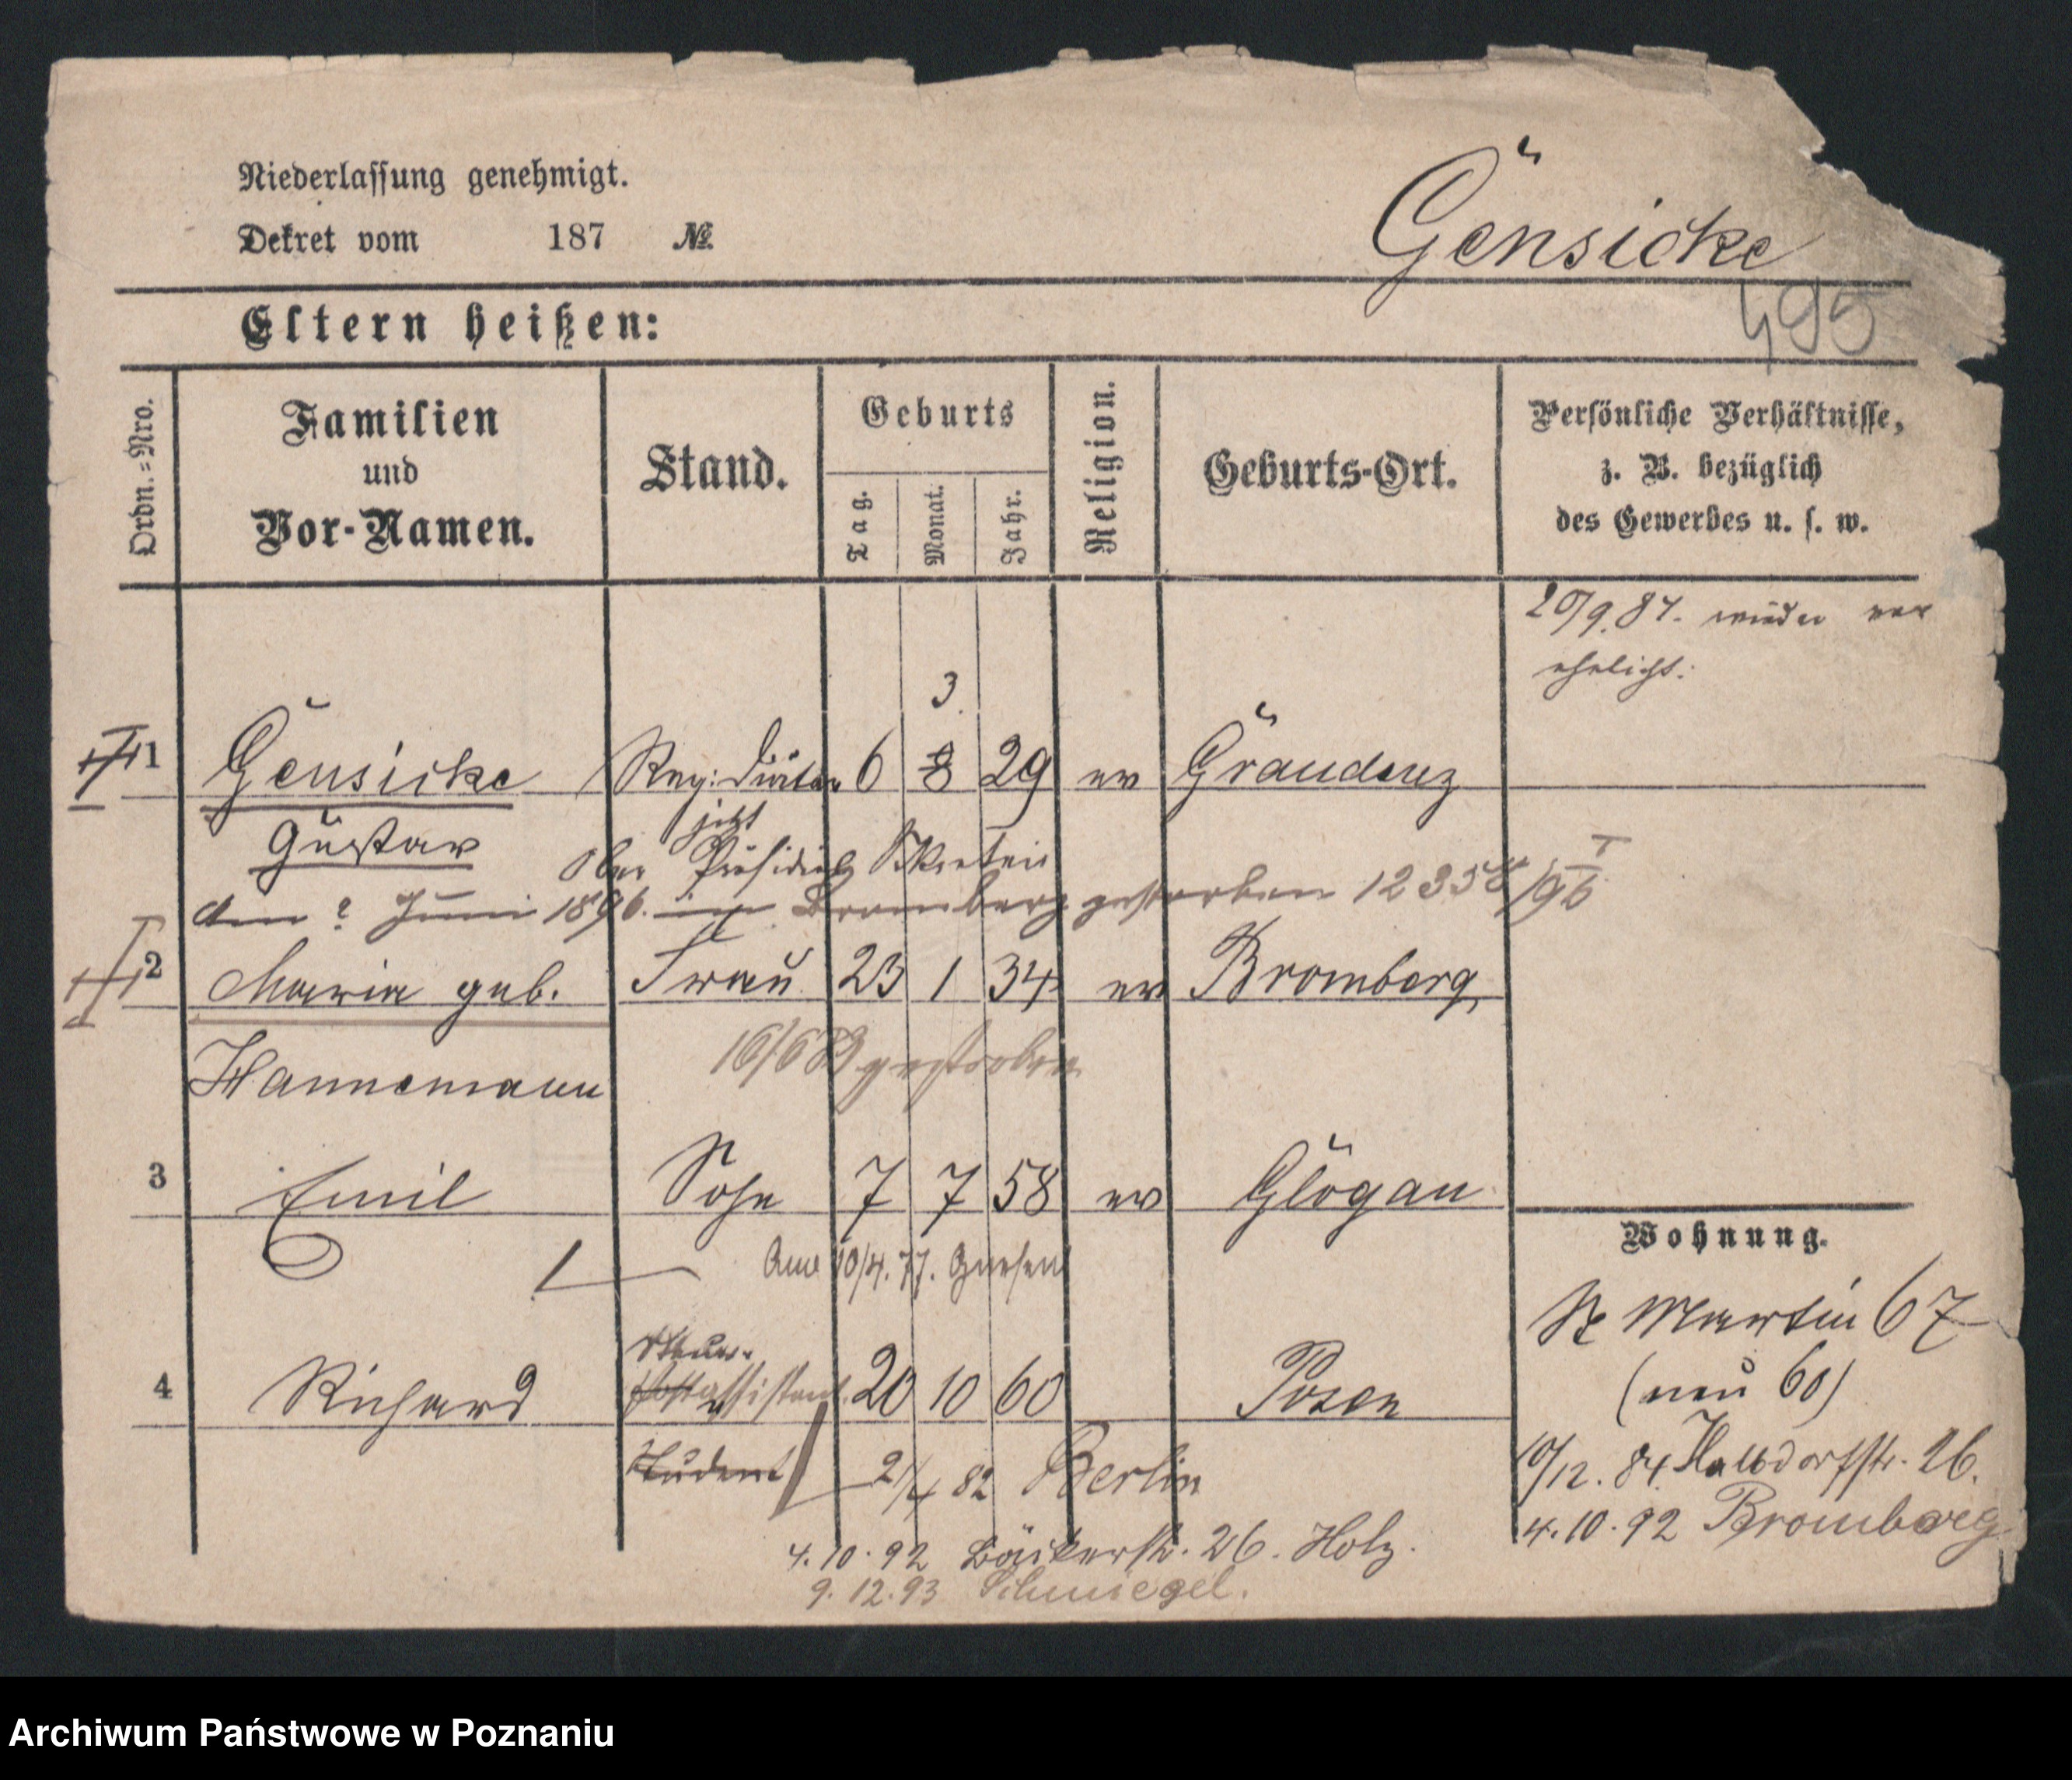 Niederlassung genehmigt.
Dekret vom 187 №
Gensicke
495
Eltern heißen:
Ordn.=Nro.
Familien
und
Vor-Namen.
Stand.
Geburts
Tag.
Monat.
Jahr.
Religion.
Geburts-Ort.
Persönliche Verhältnisse,
z. B. bezüglich
des Gewerbes u. s. w.
wieder ver
ehelicht.
3.
1 Gensicke Reg: Diätar 6 8 29 ev Graudenz
Gustav
jetzt
Ober Präsidial Sekretair
den 2 Juni 1896. in Bromberg gestorben 12358/96
2 Maria geb. Frau 23 1 34 ev Bromberg
Hannemann
16/6 89 gestorben
3 Emil Sohn 7 7 58 ev Glogau
10/4. 77. Gnesen
Wohnung.
St Martin 67
(neu 60)
Steuer-
4 Richard Postassistent. 20 10 60 Posen
Student 21/4 82 Berlin
10/12. 84. Halbdorfstr. 26.
4.10.92 Bromberg
4.10.92 Bäckerstr. 26. Holz.
9.12.93 Schmiegel.
Archiwum Państwowe w Poznaniu